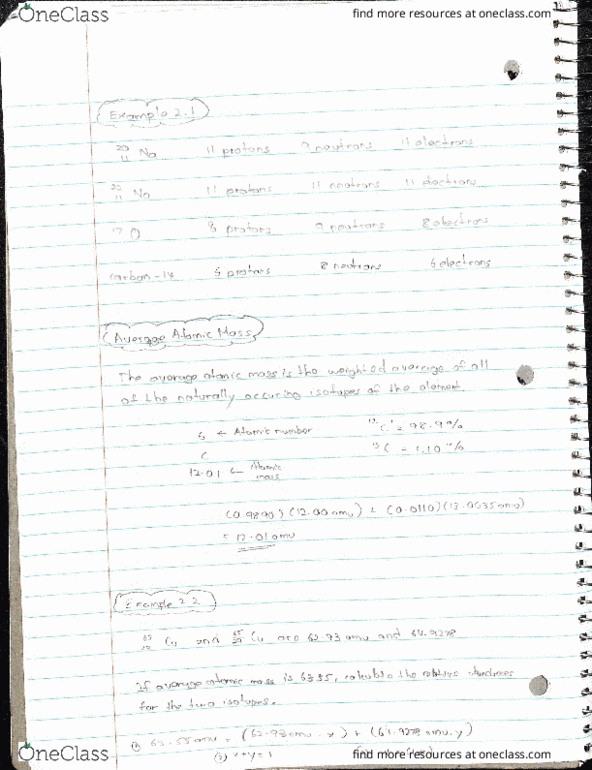 OneClass find more resources at oneclass.com
Example 2.1
20 11 Na 11 protons 9 neutrons 11 electrons
22 11 Na 11 protons 11 neutrons 11 electrons
17 O 8 protons 9 neutrons 8 electrons
carbon-14 6 protons 8 neutrons 6 electrons
Average Atomic Mass
The average atomic mass is the weighted average of all
of the naturally occuring isotopes of the element.
6 ← Atomic number 12 C = 98.9%
C 13 C = 1.10%
12.01 ← Atomic mass
(0.9890)(12.00amu) + (0.0110)(13.0035amu)
= 12.01amu
Example 2.2
Cu and 65 29 Cu are 62.93 amu and 64.9278
If average atomic mass is 63.55, calculate the relative
for the two isotopes.
(1) 63.55amu = (62.93amu · x) + (64.9278 amu · y)
(2) x+y=1
OneClass find more resources at oneclass.com